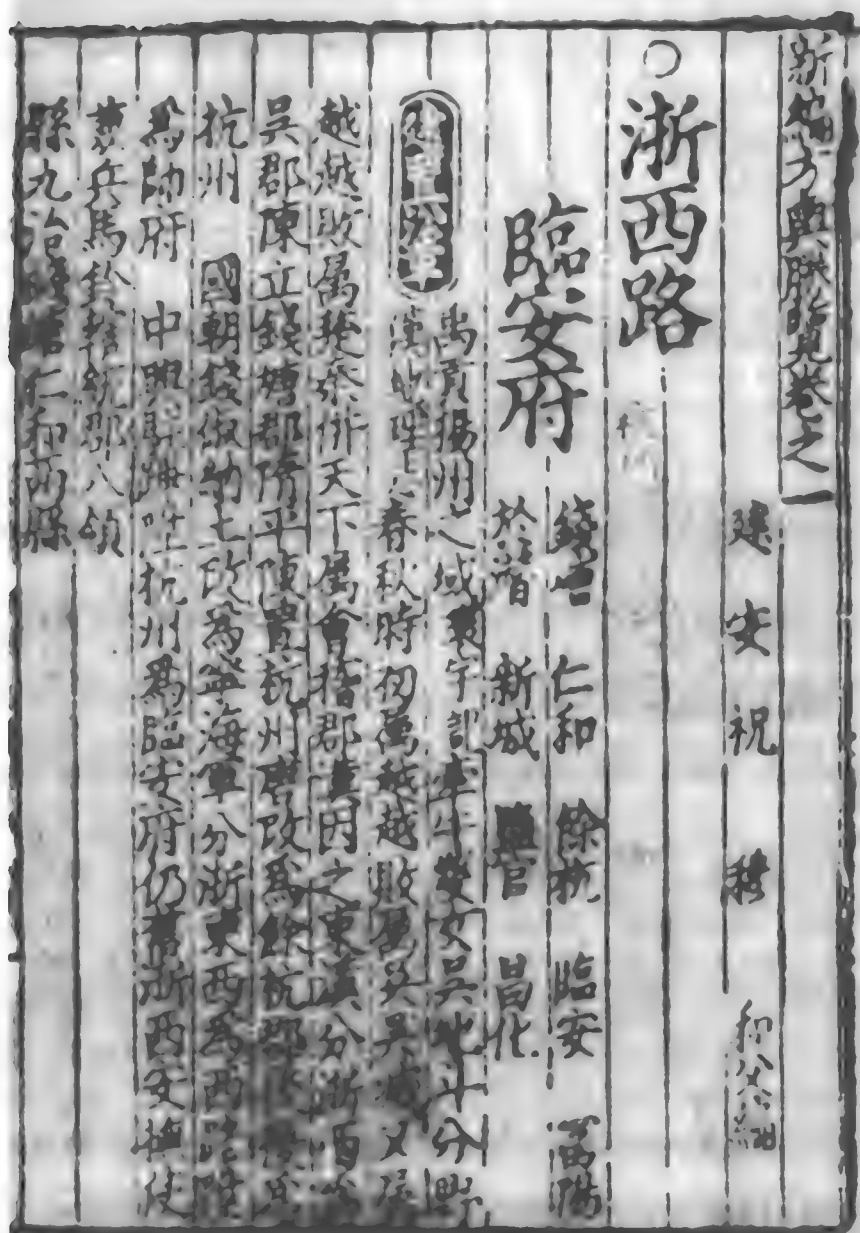 新編方輿勝覽卷之一
建安祝穆和父編
○浙西路
臨安府
錢塘 仁和 餘杭 臨安 富陽
於潛 新城 鹽官 昌化
建置沿革
禹貢揚州之域 寰宇記 吳地斗分野
漢地理 春秋時初屬越越敗屬吳吳滅又屬
越越敗屬楚秦併天下屬會稽郡漢因之東漢分浙西為
吳郡陳立錢塘郡隋平陳置杭州唐改為餘杭郡
杭州 國朝錢俶納土改為寧海軍分浙東西為兩路陞
為帥府 中興駐蹕陞杭州為臨安府仍置浙西安撫使
兼兵馬鈐轄統郡八領
縣九治錢塘仁和兩縣